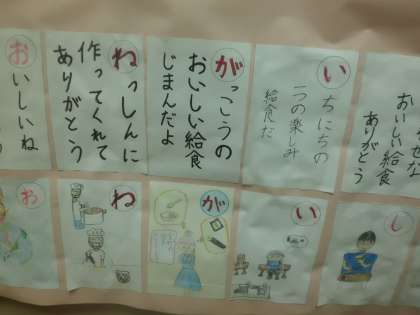 せな
おいしい給食
ありがとう
いちにちの
一つの楽しみ
給食だ
がっこうの
おいしい給食
じまんだよ
ねっしんに
作ってくれて
ありがとう
おいしいね
し
い
が
ね
お